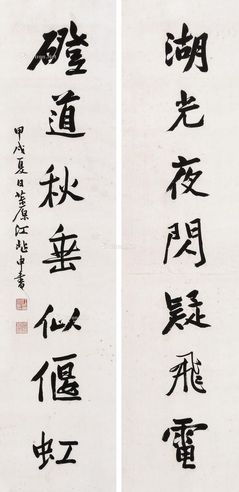 湖光夜閃疑飛電
磴道秋垂似偃虹
甲戌夏日茮原江兆申書